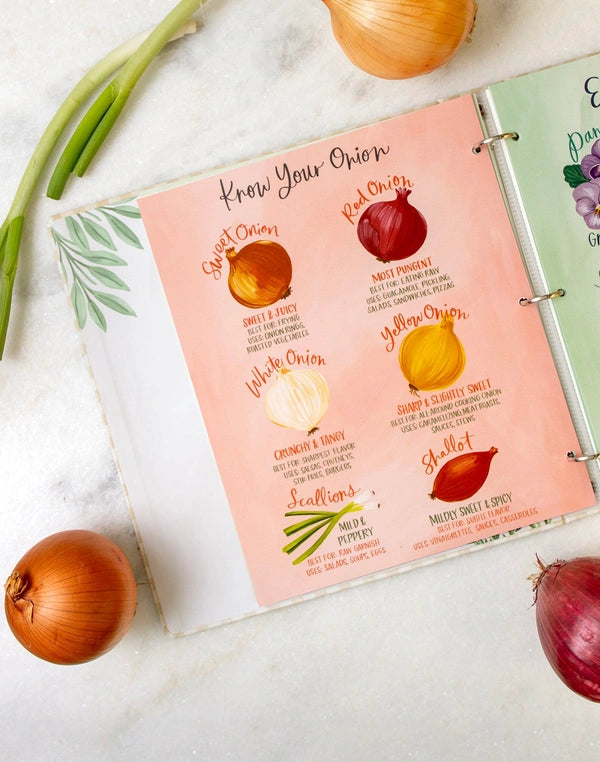 Know Your Onion
Sweet Onion
SWEET & JUICY
BEST FOR: FRYING
USES: ONION RINGS,
ROASTED VEGETABLES
Red Onion
MOST PUNGENT
BEST FOR: EATING RAW
USES: GUACAMOLE, PICKLING,
SALADS, SANDWICHES, PIZZAS
White Onion
CRUNCHY & TANGY
BEST FOR: SHARPEST FLAVOR
USES: SALSAS, CHUTNEYS,
STIR FRIES, BURGERS
Yellow Onion
SHARP & SLIGHTLY SWEET
BEST FOR: ALL AROUND COOKING ONION
USES: CARAMELIZING, MEAT ROASTS,
SAUCES, STEWS
Scallions
MILD &
PEPPERY
BEST FOR: RAW GARNISH
USES: SALADS, SOUPS, EGGS
Shallot
MILDLY SWEET & SPICY
BEST FOR: SUBTLE FLAVOR
USES: VINAIGRETTES, SAUCES, CASSEROLES
E
Pan
GR